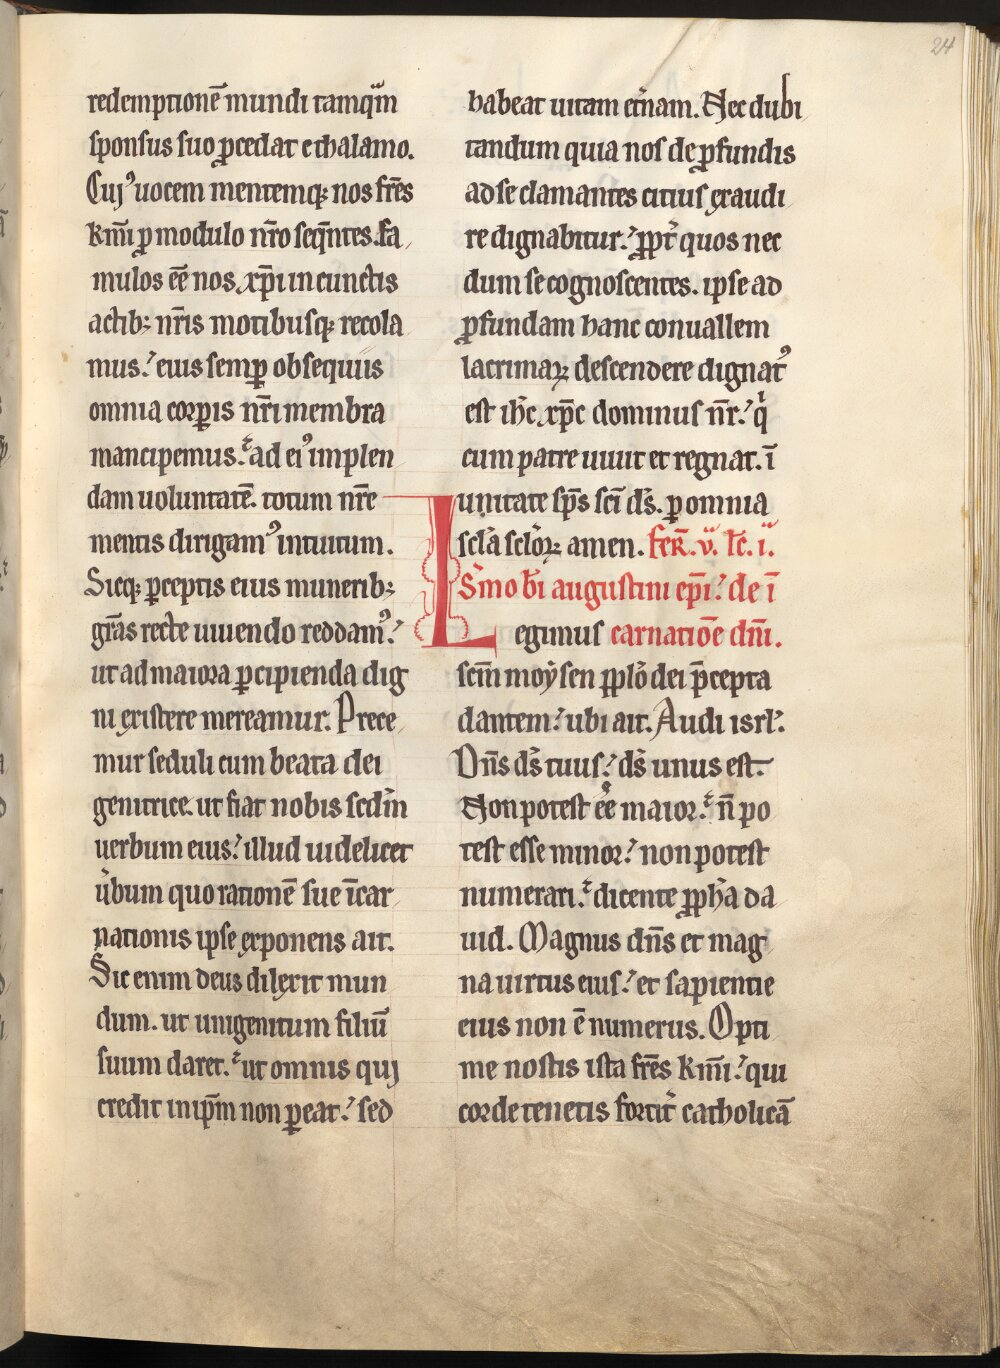 24
redemptionē mundi tamqᷓm
sponsus suo ꝓcedat e thalamo.
Cuj᾽ uocem mentemqꝫ nos fr̄es
km̄i ꝓ modulo nr̄o seq̄ntes. fa
mulos ēē nos xp̄i in cunctis
actibꝫ nr̄is motibusqꝫ recola
mus. eius semꝑ obsequiis
omnia corꝑis nr̄i membra
mancipemus. ad ei᾽ implen
dam uoluntatē. totum nr̄e
mentis dirigam᾽ intuitum.
Sicqꝫ ꝑceptis eius muneribꝫ
gr̄as recte uiuendo reddam᾽.
ut ad maiora ꝑcipienda dig
ni existere mereamur. Prece
mur seduli cum beata dei
genitrice. ut fiat nobis scd̄m
uerbum eius. illud uidelicet
u̅bum quo rationē sue īcar
nationis ipse exponens ait.
Sic enim deus dilexit mun
dum. ut unigenitum filiū
suum daret. ut omnis quj
credit in ip̄m non ꝑeat. sed
habeat uitam et̄nam. Nec dubi
tandum quia nos de ꝓfundis
ad se clamantes citius exaudi
re dignabitur. ꝓpt̄ quos nec
dum se cognoscentes. ipse ad
ꝓfundam hanc conuallem
lacrimaꝝ descendere dignat᾽
est ih̄c xp̄c dominus nr̄. qͥ
cum patre uiuit et regnat. ī
unitate sp̄s sc̄i ds̄. ꝑ omnia
scl̄a scl̄oꝝ amen. feR̄. v. lc̄. i.
S̄mo bī augustini ep̄i. de ī
Legimus carnatiōe dn̄i.
scm̄ moẏsen ppl̄o dei p̄cepta
dantem. ubi ait. Audi isrl̄.
Dn̄s ds̄ tuus. ds̄ unus est.
Non potest ēē maior. n̄ po
test esse minor. non potest
numerari. dicente ꝓph̄a da
uid. Magnus dn̄s et mag
na uirtus eius. et sapientie
eius non ē numerus. Opti
me nostis ista fr̄es km̄i. qui
corde tenetis fortit̄ catholicā